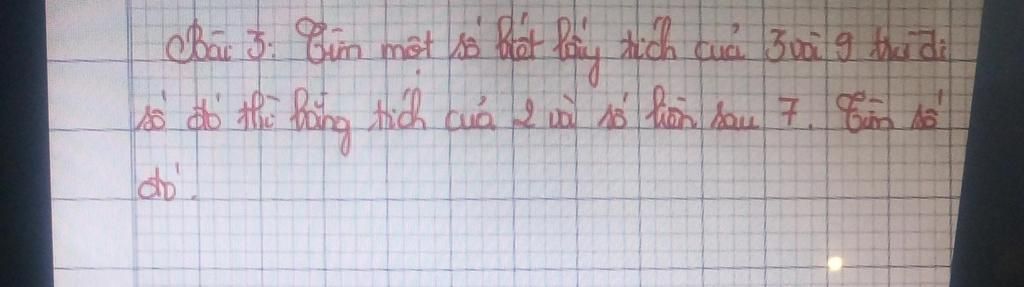 Bài 3: Tìm một số biết lấy tích của 3 và 9 trừ đi
số đó thì bằng tích của 2 và số liền sau 7. Tìm số
đó.